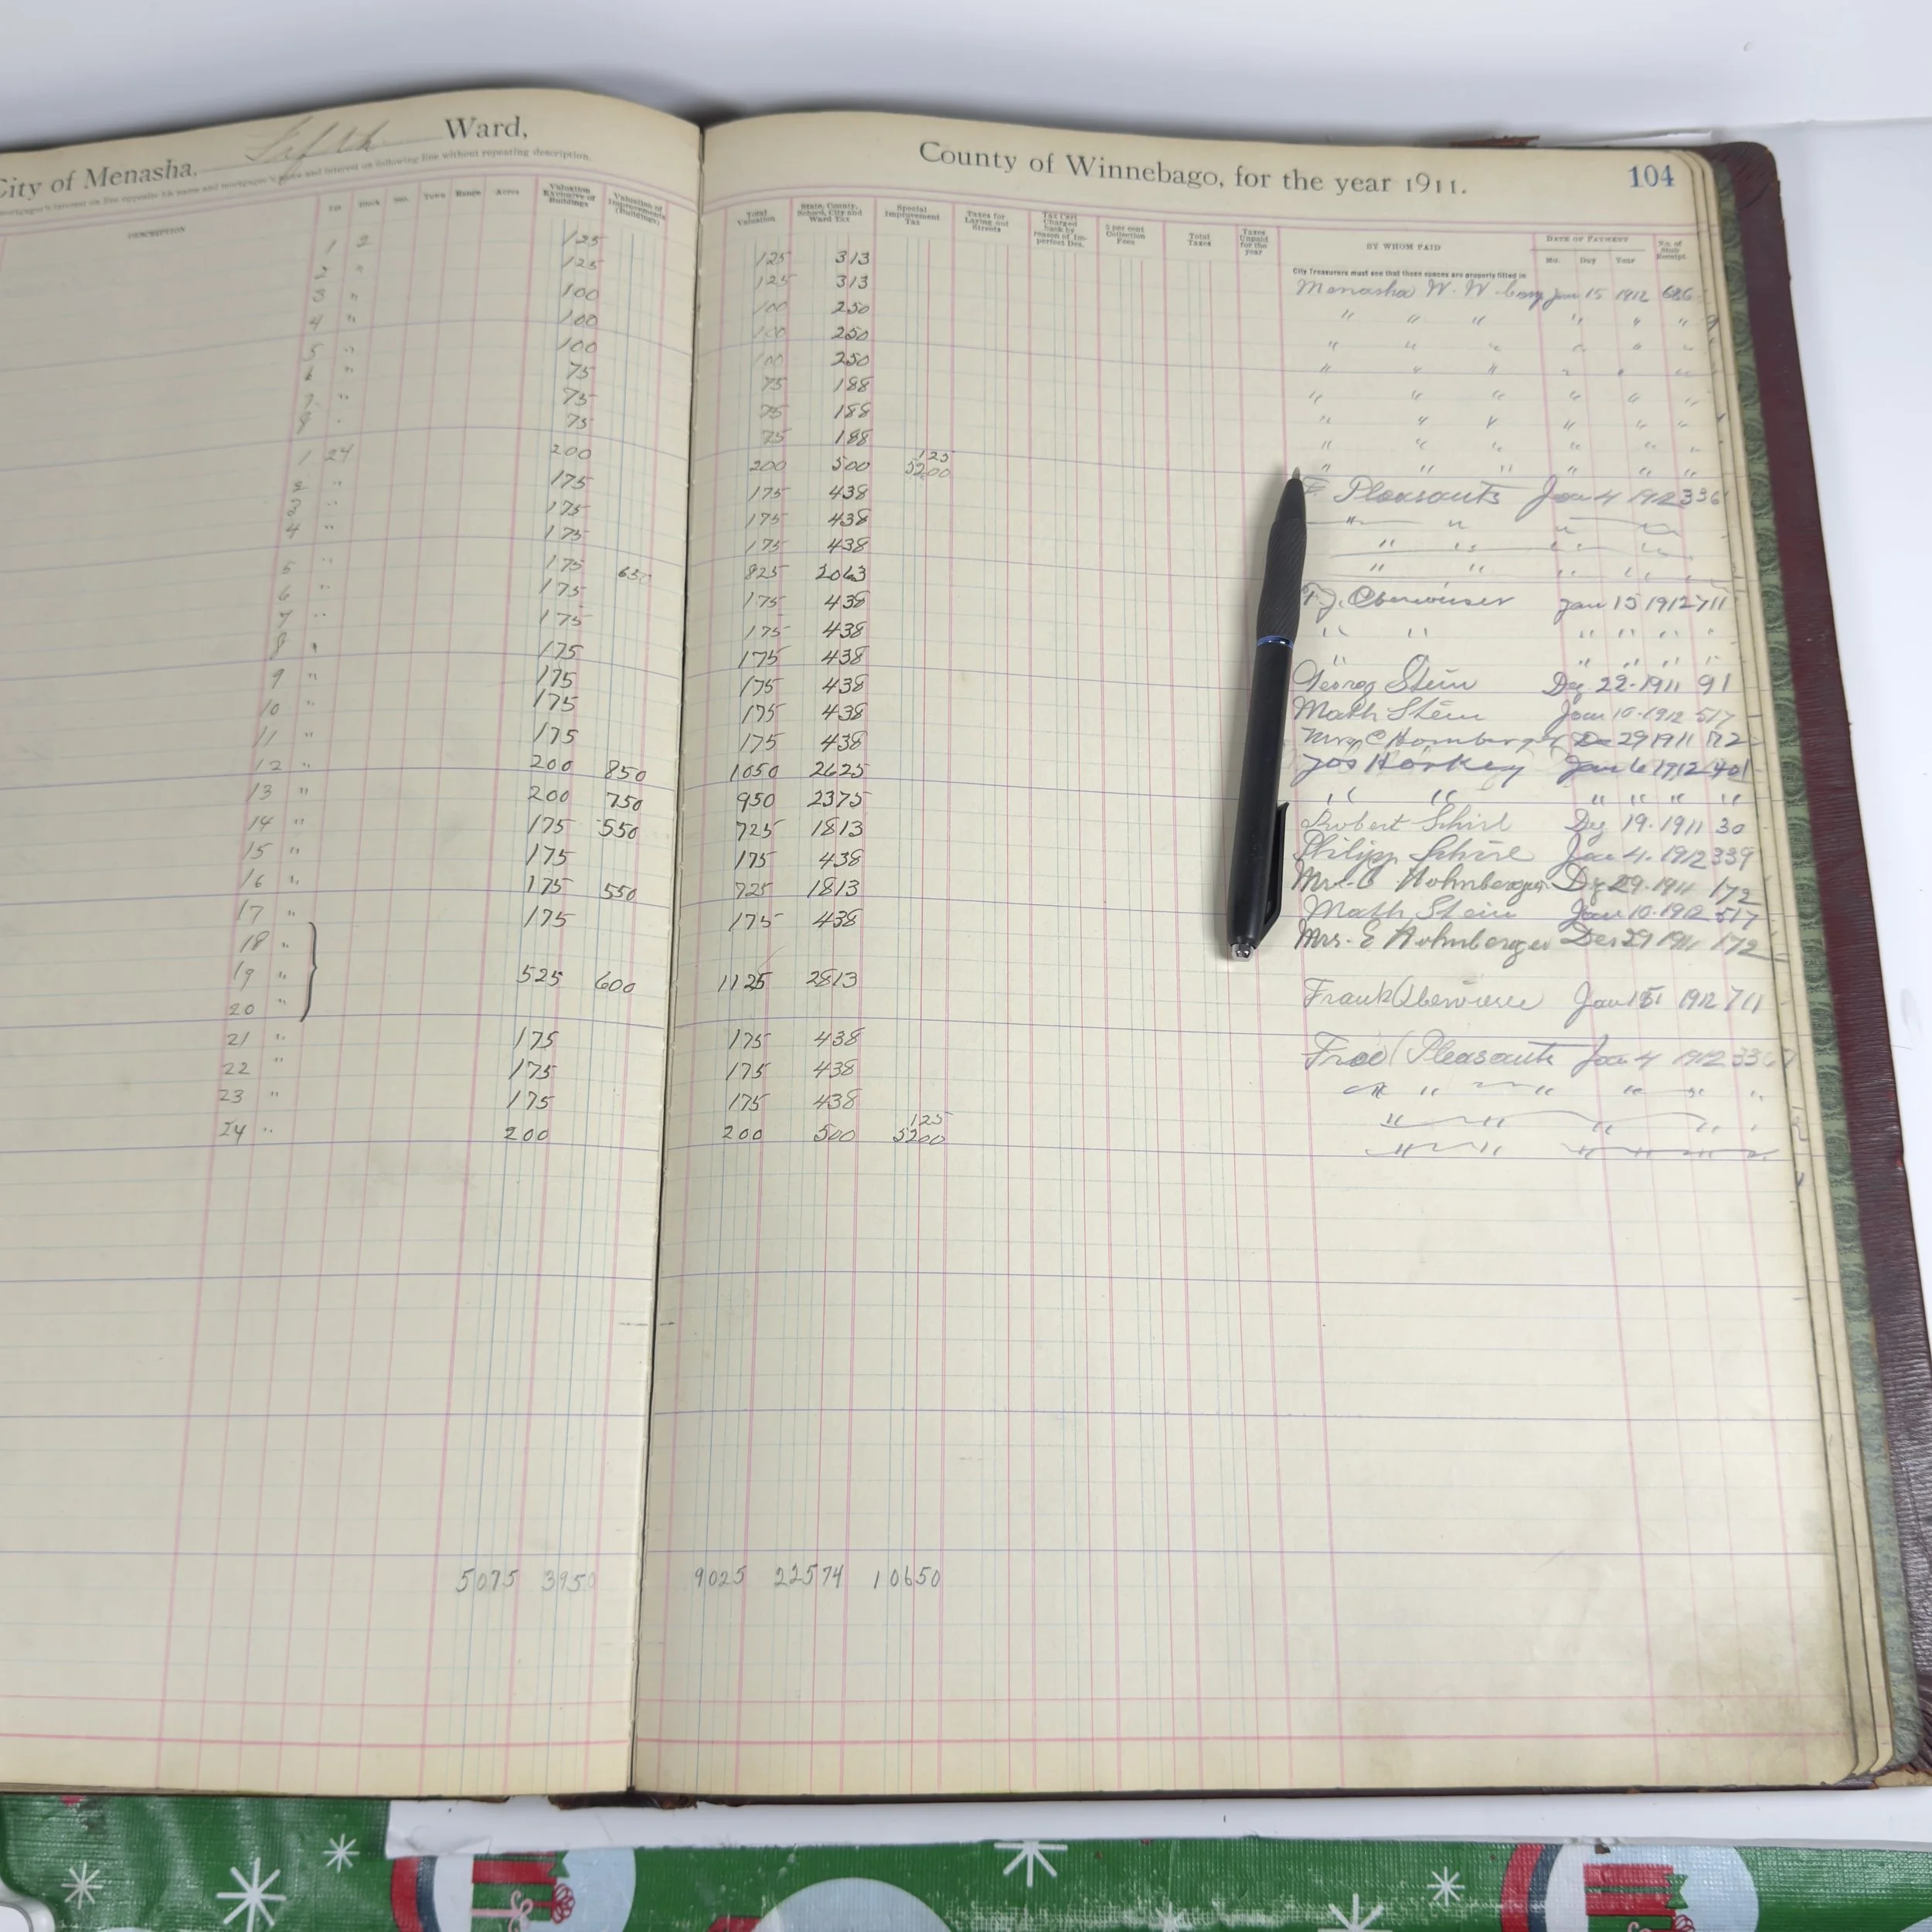 City of Menasha, Fifth Ward,
County of Winnebago, for the year 1911.
104
DESCRIPTION Lot Block Sec. Town Range Acres Valuation Exclusive of Buildings Valuation of Improvements (Buildings) Total Valuation State, County, School, City and Ward Tax Special Improvement Tax Taxes for Laying out Streets Tax Cert Charged back by reason of Imperfect Des. 5 per cent Collection Fees Total Taxes Taxes Unpaid for the year BY WHOM PAID DATE OF PAYMENT Mo. Day Year No. of Stub Receipt
City Treasurers must see that these spaces are properly filled in
1 2 125 125 313 Menasha W. W. Jan 15 1912 686
2 " 125 125 313 " " " " " "
3 " 100 100 250 " " " " " "
4 " 100 100 250 " " " " " "
5 " 100 100 250 " " " " " "
6 " 75 75 188 " " " " " "
7 " 75 75 188 " " " " " "
8 " 75 75 188 " " " " " "
125
1 24 200 200 500 5200 F. Pleasants Jan 4 1912 336
2 " 175 175 438 " " " "
3 " 175 175 438 " " " "
4 " 175 175 438 " " " " "
5 " 175 650 825 2063 F. J. Oberweiser Jan 15 1912 711
6 " 175 175 438 " " " " " "
7 " 175 175 438 " " " " "
8 " 175 175 438 George Stein Dec 22-1911 91
9 " 175 175 438 Math Stein Jan 10-1912 517
10 " 175 175 438 Mrs Dec 29 1911 172
11 " 175 175 438 Jos Horkey Jan 6 1912 401
12 " 200 850 1050 2625 " " " " " "
13 " 200 750 950 2375 Robert Schirl Dec 19-1911 30
14 " 175 550 725 1813 Philipp Schirl Jan 4. 1912 339
15 " 175 175 438 Mrs. Hohnberger Dec 29-1911 172
16 " 175 550 725 1813 Math Stein Jan 10-1912 517
17 " 175 175 438 Mrs. E Hohnberger Dec 29 1911 172
18 "
19 " 525 600 1125 2813 Frank Jan 15 1912 711
20 "
21 " 175 175 438 Fred Pleasants Jan 4 1912 336
22 " 175 175 438 " " " " " "
23 " 175 175 438 " " " " "
125
24 " 200 200 500 5200 " " " " "
5075 3950 9025 22574 10650